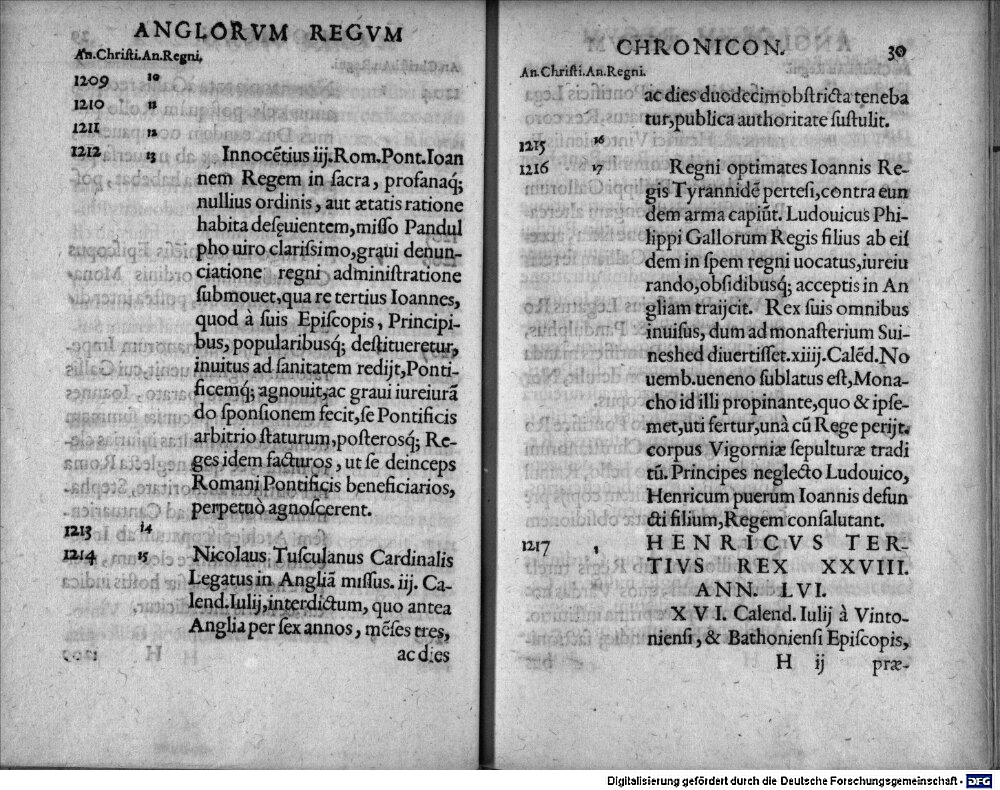 ANGLORVM REGVM
An.Christi.An.Regni.
1209 10
1210 11
1211 12
1212 13 Innocẽtius iij.Rom.Pont.Ioan
nem Regem in sacra, profanaq́;
nullius ordinis, aut ætatis ratione
habita desęuientem,misso Pandul
pho uiro clarissimo,graui denun-
ciatione regni administratione
submouet,qua re tertius Ioannes,
quod à suis Episcopis, Principi-
bus, popularibusq́; destitueretur,
inuitus ad sanitatem redijt,Ponti-
ficemq́; agnouit,ac graui iureiurã
do sponsionem fecit,se Pontificis
arbitrio staturum,posterosq́; Re-
ges idem facturos, ut se deinceps
Romani Pontificis beneficiarios,
perpetuò agnoscerent.
1213 14
1214 15 Nicolaus Tusculanus Cardinalis
Legatus in Angliã missus. iij. Ca-
lend.Iulij,interdictum, quo antea
Anglia per sex annos, mẽses tres,
ac dies
CHRONICON. 30
An.Christi.An.Regni.
ac dies duodecim obstricta teneba
tur,publica authoritate sustulit.
1215 16
1216 17 Regni optimates Ioannis Re-
gis Tyrannidẽ pertesi,contra eun
dem arma capiũt. Ludouicus Phi-
lippi Gallorum Regis filius ab eis
dem in spem regni uocatus,iureiu
rando,obsidibusq́; acceptis in An
gliam traijcit. Rex suis omnibus
inuisus, dum ad monasterium Sui-
neshed diuertisset.xiiij.Calẽd.No
uemb.ueneno sublatus est,Mona-
cho id illi propinante,quo & ipse-
met,uti fertur,unà cũ Rege perijt.
corpus Vigorniæ sepulturæ tradi
tũ. Principes neglecto Ludouico,
Henricum puerum Ioannis defun
cti filium,Regem consalutant.
1217 1 HENRICVS TER-
TIVS REX XXVIII.
ANN. LVI.
XVI. Calend. Iulij à Vinto-
niensi, & Bathoniensi Episcopis,
H ij præ-
Digitalisierung gefördert durch die Deutsche Forschungsgemeinschaft - DFG